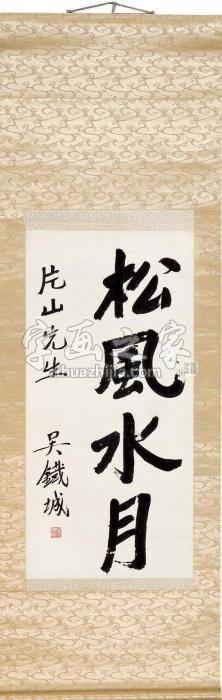 松風水月
片山先生
吳鐵城
字画之家
zihuazhijia.com